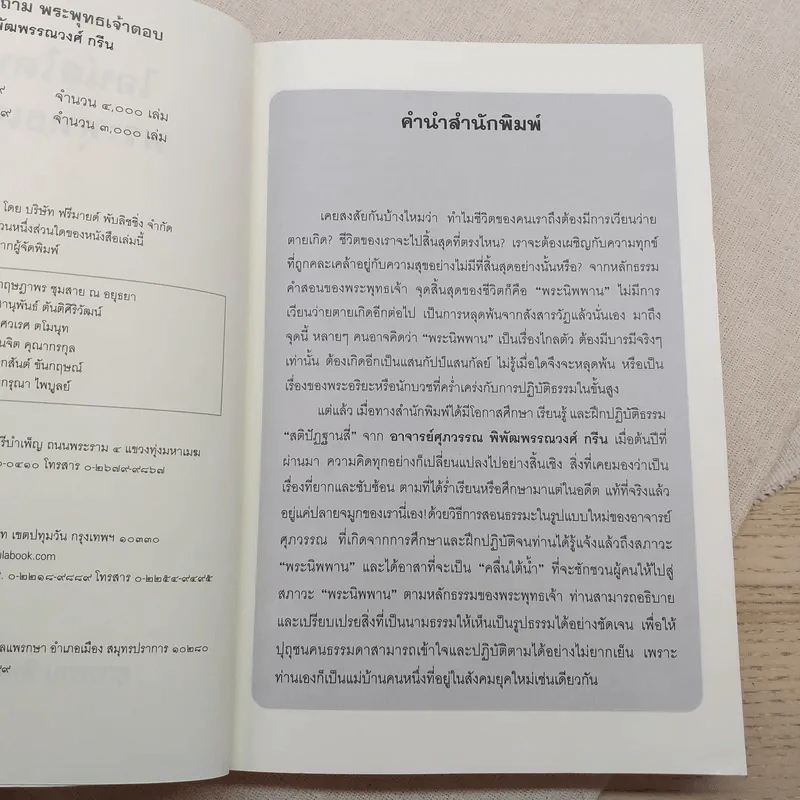 ถาม พระพุทธเจ้าตอบ
พัฒพรรณวงศ์ กรีน
๙ จำนวน ๔,๐๐๐ เล่ม
๙ จำนวน ๓,๐๐๐ เล่ม
โดย บริษัท ฟรีมายด์ พับลิชชิ่ง จำกัด
วนหนึ่งส่วนใดของหนังสือเล่มนี้
ากผู้จัดพิมพ์
กฤษฎาพร ชุมสาย ณ อยุธยา
านุพันธ์ ตันติศิริวัฒน์
ศวเรศ ตโมนุท
นจิต คุณากรกุล
กสันต์ ขันกฤษณ์
กรุณา ไพบูลย์
รีบำเพ็ญ ถนนพระราม ๔ แขวงทุ่งมหาเมฆ
๐-๐๔๑๐ โทรสาร ๐-๒๖๗๙-๙๘๖๗
ท เขตปทุมวัน กรุงเทพฯ ๑๐๓๓๐
ulabook.com
๐-๒๒๑๘-๙๘๘๙ โทรสาร ๐-๒๒๕๔-๙๔๙๕
ลแพรกษา อำเภอเมือง สมุทรปราการ ๑๐๒๘๐
๙๙
คำนำสำนักพิมพ์
เคยสงสัยกันบ้างไหมว่า ทำไมชีวิตของคนเราถึงต้องมีการเวียนว่าย
ตายเกิด? ชีวิตของเราจะไปสิ้นสุดที่ตรงไหน? เราจะต้องเผชิญกับความทุกข์
ที่ถูกคละเคล้าอยู่กับความสุขอย่างไม่มีที่สิ้นสุดอย่างนั้นหรือ? จากหลักธรรม
คำสอนของพระพุทธเจ้า จุดสิ้นสุดของชีวิตก็คือ “พระนิพพาน” ไม่มีการ
เวียนว่ายตายเกิดอีกต่อไป เป็นการหลุดพ้นจากสังสารวัฏแล้วนั่นเอง มาถึง
จุดนี้ หลายๆ คนอาจคิดว่า “พระนิพพาน” เป็นเรื่องไกลตัว ต้องมีบารมีจริงๆ
เท่านั้น ต้องเกิดอีกเป็นแสนกัปป์แสนกัลย์ ไม่รู้เมื่อใดจึงจะหลุดพ้น หรือเป็น
เรื่องของพระอริยะหรือนักบวชที่คร่ำเคร่งกับการปฏิบัติธรรมในขั้นสูง
แต่แล้ว เมื่อทางสำนักพิมพ์ได้มีโอกาสศึกษา เรียนรู้ และฝึกปฏิบัติธรรม
“สติปัฏฐานสี่” จาก อาจารย์ศุภวรรณ พิพัฒพรรณวงศ์ กรีน เมื่อต้นปีที่
ผ่านมา ความคิดทุกอย่างก็เปลี่ยนแปลงไปอย่างสิ้นเชิง สิ่งที่เคยมองว่าเป็น
เรื่องที่ยากและซับซ้อน ตามที่ได้ร่ำเรียนหรือศึกษามาแต่ในอดีต แท้ที่จริงแล้ว
อยู่แค่ปลายจมูกของเรานี่เอง!ด้วยวิธีการสอนธรรมะในรูปแบบใหม่ของอาจารย์
ศุภวรรณ ที่เกิดจากการศึกษาและฝึกปฏิบัติจนท่านได้รู้แจ้งแล้วถึงสภาวะ
“พระนิพพาน” และได้อาสาที่จะเป็น “คลื่นใต้น้ำ” ที่จะชักชวนผู้คนให้ไปสู่
สภาวะ “พระนิพพาน” ตามหลักธรรมของพระพุทธเจ้า ท่านสามารถอธิบาย
และเปรียบเปรยสิ่งที่เป็นนามธรรมให้เห็นเป็นรูปธรรมได้อย่างชัดเจน เพื่อให้
ปุถุชนคนธรรมดาสามารถเข้าใจและปฏิบัติตามได้อย่างไม่ยากเย็น เพราะ
ท่านเองก็เป็นแม่บ้านคนหนึ่งที่อยู่ในสังคมยุคใหม่เช่นเดียวกัน